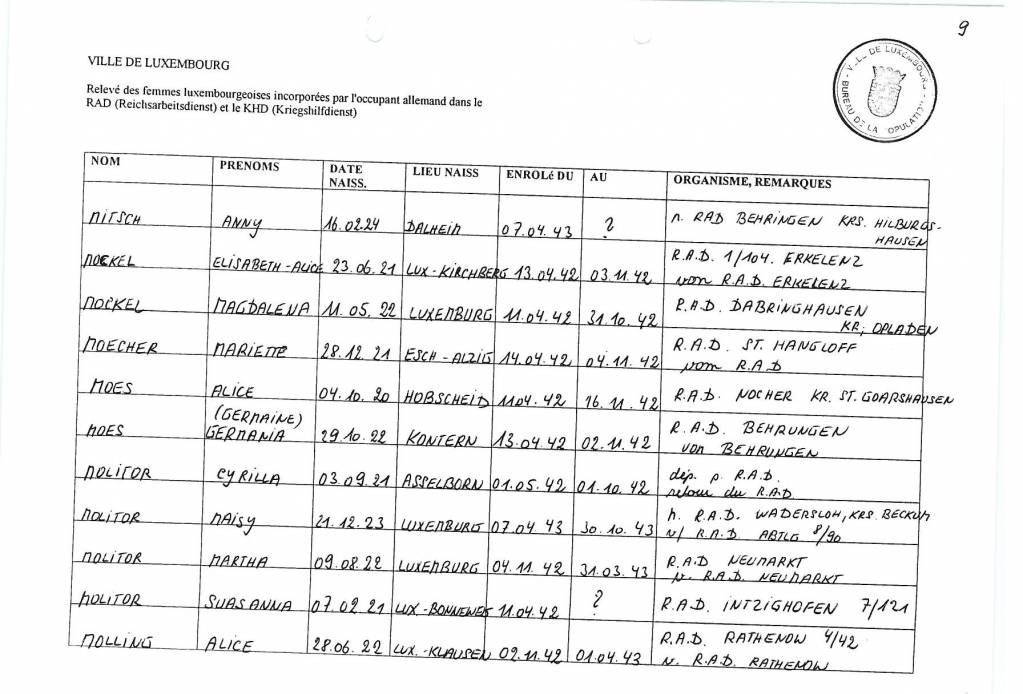 9
VILLE DE LUXEMBOURG
Relevé des femmes luxembourgeoises incorporées par l'occupant allemand dans le
RAD (Reichsarbeitsdienst) et le KHD (Kriegshilfdienst)
VILLE DE LUXEMBOURG
BUREAU DE LA POPULATION
NOM PRENOMS DATE NAISS. LIEU NAISS ENROLé DU AU ORGANISME, REMARQUES
MITSCH ANNY 16.02.24 DALHEIM 07.04.43 ? n. RAD BEHRINGEN KRS. HILBURGS-
HAUSEN
MOCKEL ELISABETH-ALICE 23.06.21 LUX-KIRCHBERG 13.04.42 03.11.42 R.A.D. 1/104. ERKELENZ
vom R.A.D. ERKELENZ
MOCKEL MAGDALENA 11.05.22 LUXEMBURG 11.04.42 31.10.42 R.A.D. DABRINGHAUSEN
KR; OPLADEN
MOECHER MARIETTE 28.12.21 ESCH-ALZIG 14.04.42 04.11.42 R.A.D. ST. HANGLOFF
vom R.A.D
MOES ALICE 04.10.20 HOBSCHEID 11.04.42 16.11.42 R.A.D. NOCHER KR. ST. GOARSHAUSEN
MOES (GERMAINE)
GERMANIA 29.10.22 KONTERN 13.04.42 02.11.42 R.A.D. BEHRUNGEN
von BEHRUNGEN
MOLITOR CYRILLA 03.09.21 ASSELBORN 01.05.42 01.10.42 dép. p. R.A.D.
retour du R.A.D.
MOLITOR MAISY 21.12.23 LUXEMBURG 07.04.43 30.10.43 n. R.A.D. WADERSLOH, KRS. BECKUM
v/ R.A.D. ABTLG 8/90
MOLITOR MARTHA 09.08.22 LUXEMBURG 04.11.42 31.03.43 R.A.D NEUMARKT
v. R.A.D. NEUMARKT
MOLITOR SUASANNA 07.02.21 LUX-BONNEWEG 11.04.42 ? R.A.D. INTZIGHOFEN 7/121
MOLLING ALICE 28.06.22 LUX.-KLAUSEN 02.11.42 01.04.43 R.A.D. RATHENOW 4/42
v. R.A.D. RATHENOW